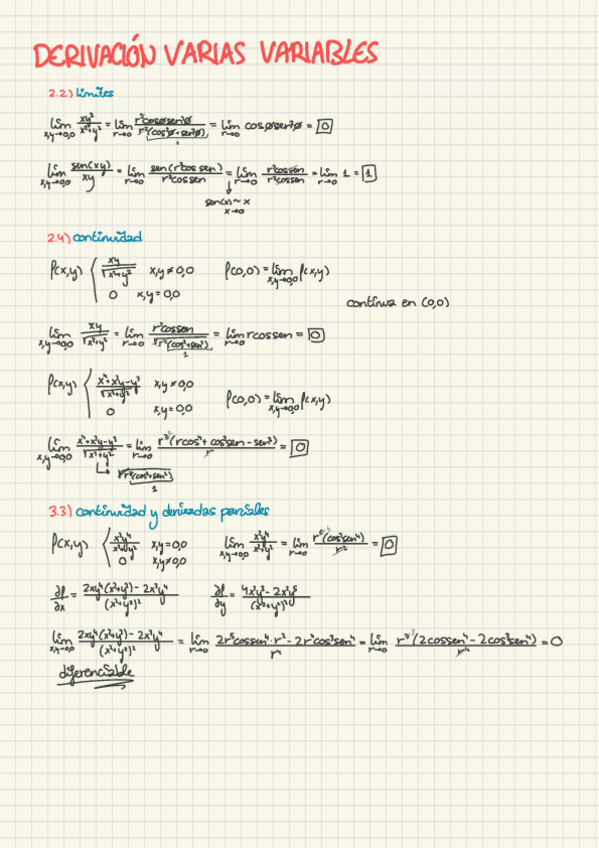 DERIVACIÓN VARIAS VARIABLES
2.2) límites
lim x,y→0,0 xy²/x²+y² = lim r→0 r³cosøsen²ø/r²(cos²ø+sen²ø) 1 = lim r→0 r cosøsen²ø = 0
lim x,y→0,0 sen(xy)/xy = lim r→0 sen(r²cos sen)/r²cossen = lim r→0 r²cossen/r²cossen = lim r→0 1 = 1
sen(x)~x
x→0
2.4) continuidad
f(x,y) { xy/√x²+y² x,y≠0,0 f(0,0) = lim x,y→0,0 f(x,y)
0 x,y=0,0
continua en (0,0)
lim x,y→0,0 xy/√x²+y² = lim r→0 r²cossen/√r²(cos²+sen²) 1 = lim r→0 rcossen = 0
f(x,y) { x⁴+x²y-y³/√x²+y² x,y≠0,0
0 x,y=0,0 f(0,0) = lim x,y→0,0 f(x,y)
lim x,y→0,0 x⁴+x²y-y³/√x²+y² = lim r→0 r³(rcos⁴+cos²sen-sen³)/r = 0
√r²(cos²+sen²)
1
3.3) continuidad y derivadas parciales
f(x,y) { x²y⁴/x²+y² x,y=0,0 lim x,y→0,0 x²y⁴/x²+y² = lim r→0 r⁶(cos²sen⁴)/r² = 0
0 x,y≠0,0
∂f/∂x = 2xy⁴(x²+y²)-2x³y⁴/(x²+y²)² ∂f/∂y = 4x⁴y³-2x²y⁵/(x²+y²)²
lim x,y→0,0 2xy⁴(x²+y²)-2x³y⁴/(x²+y²)² = lim r→0 2r⁵cossen⁴·r²-2r⁷cos³sen⁴/r⁴ = lim r→0 r⁷(2cossen⁴-2cos³sen⁴)/r⁴ = 0
diferenciable